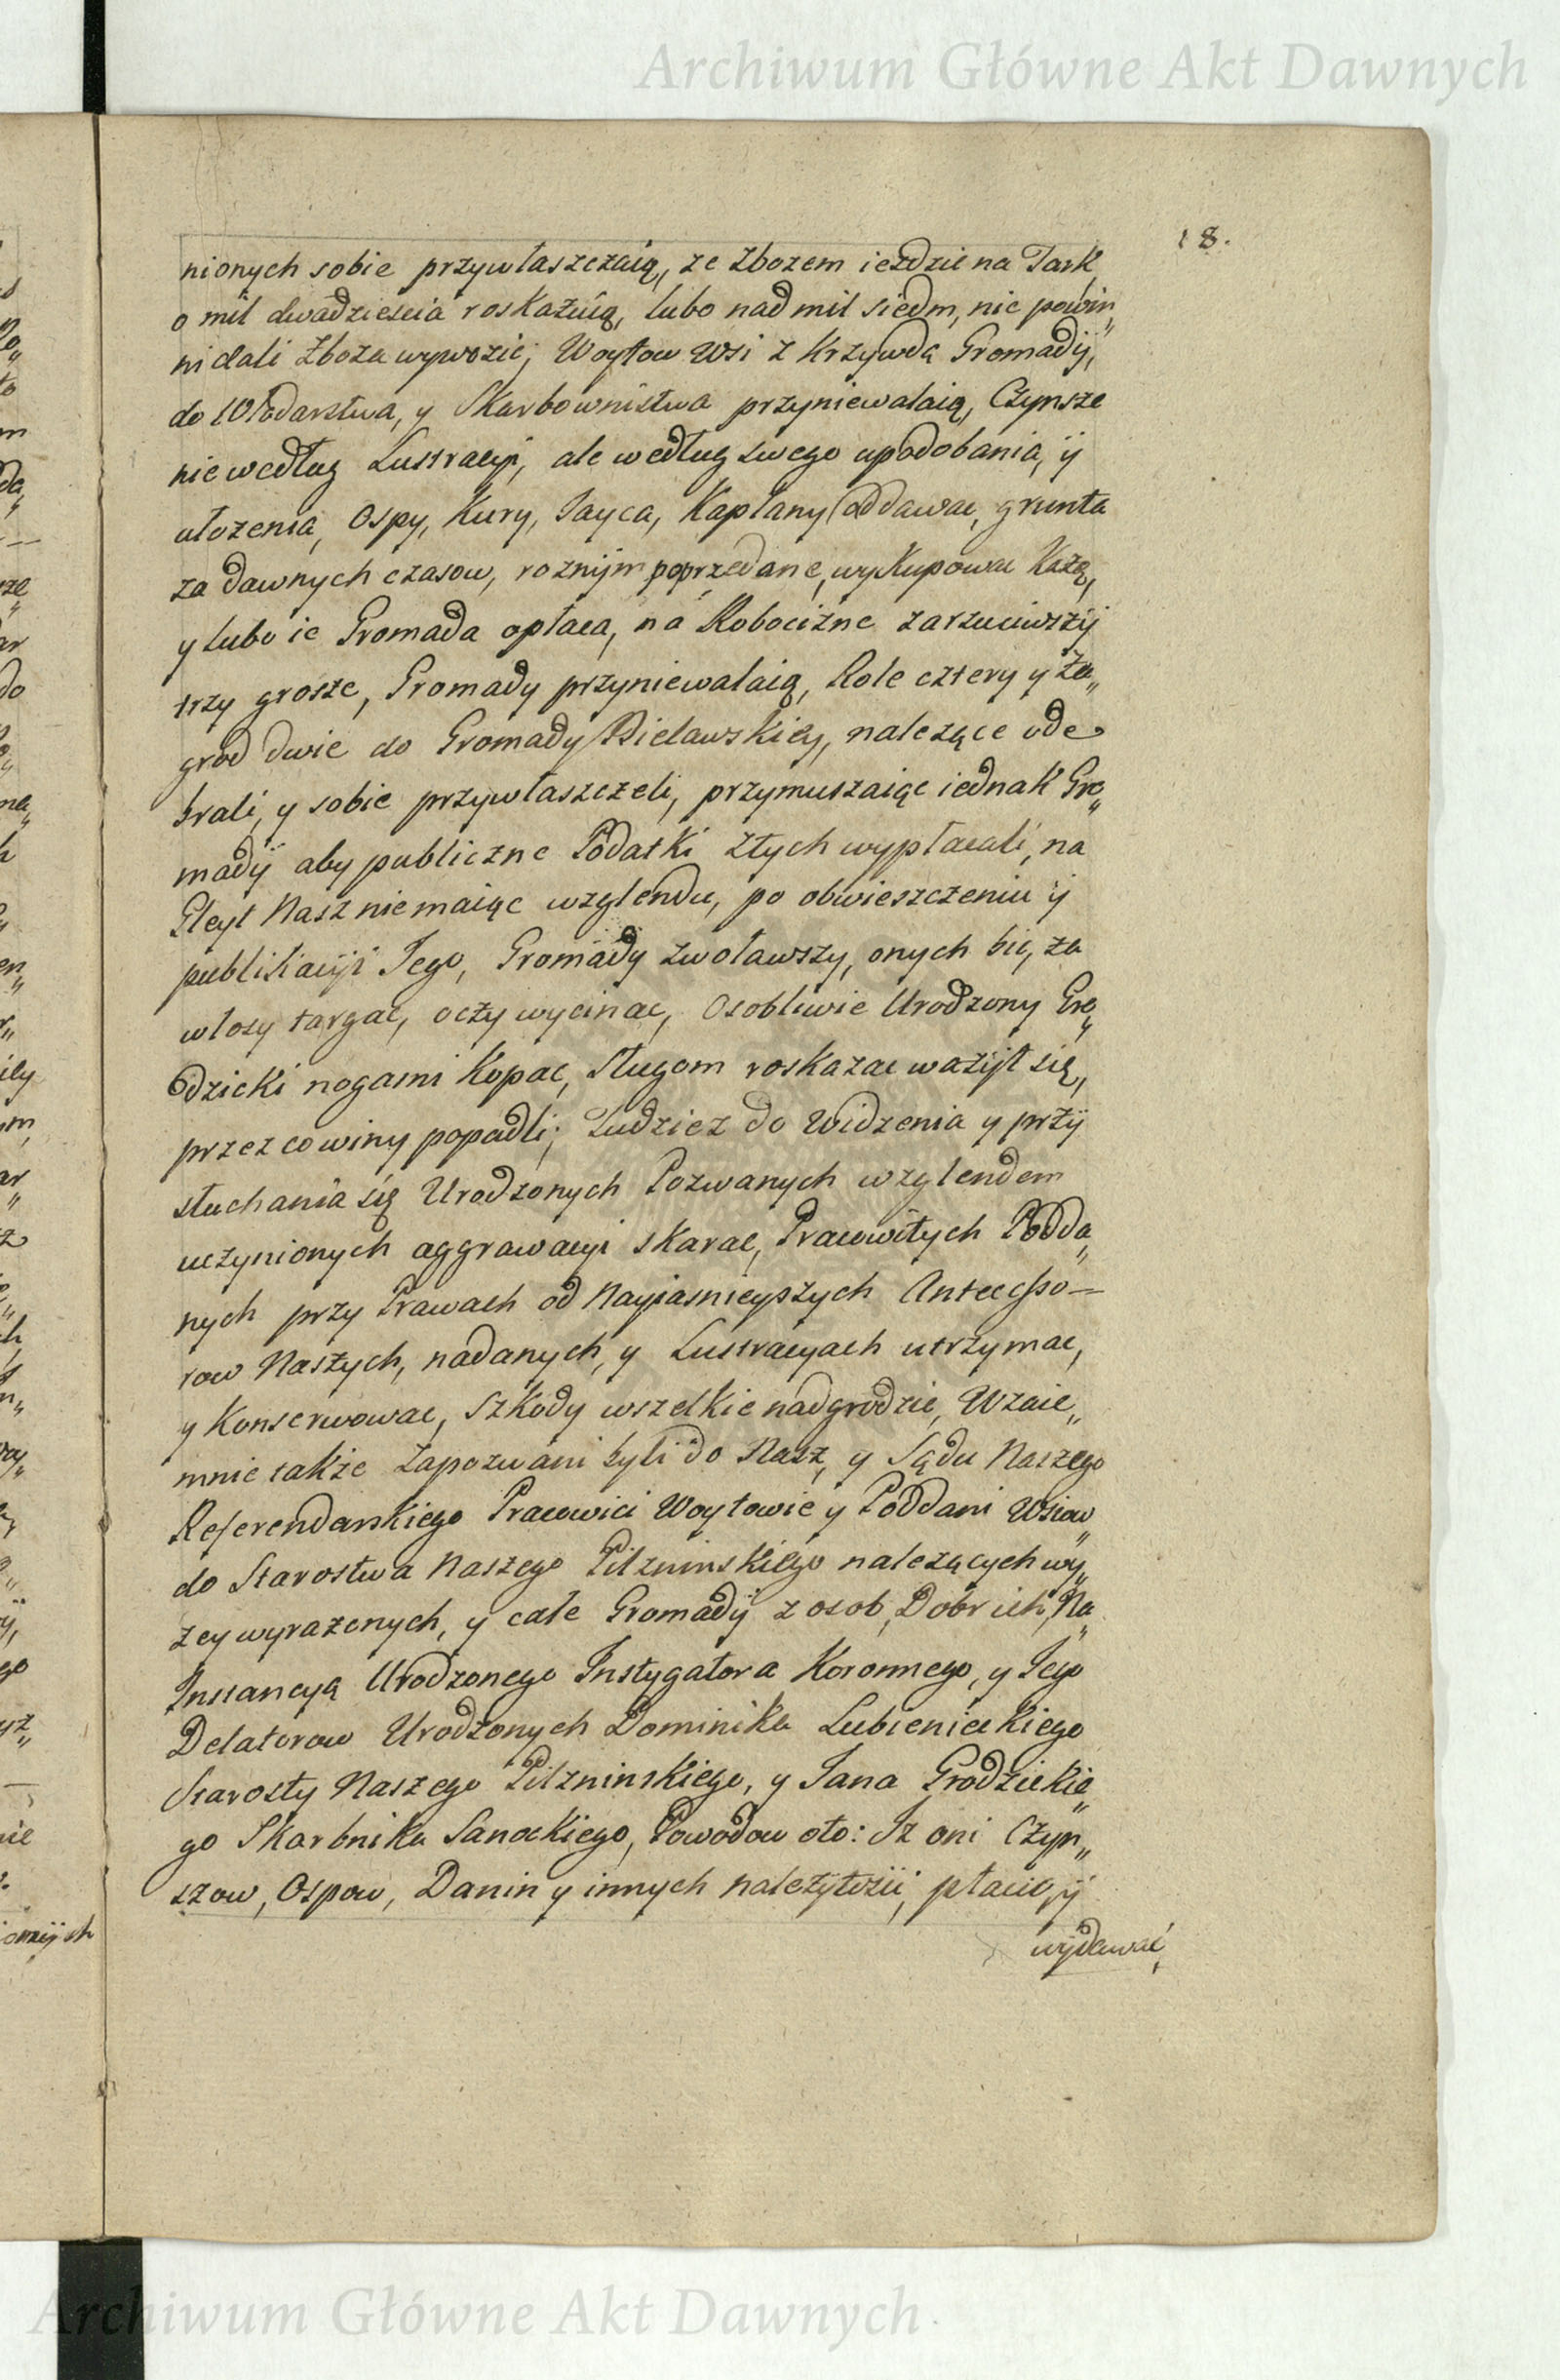 Archiwum Główne Akt Dawnych
18.
nionych sobie przywłaszczaią, ze Zbozem iezdzic na Tark
o mil dwadziescia roskazuią, lubo nad mil siedm, nie powin„
ni dali Zboza wywozic; Woytow Wsi z Krzywdą Gromady,
do Włodarstwa, y Skarbownistwa przyniewalaią, Czynsze
nie według Lustracyi, ale według swego upodobania, ÿ
ułozenia, Ospy, Kury, Jayca, Kapłany oddawac, grunta
za dawnych czasow, roznÿm poprzedane, wykupowac Każą,
y lubo ie Gromada opłaca, na Robocizne zarzuciwszÿ
trzy grosze, Gromady przyniewalaią, Role cztery y Za„
grod dwie do Gromady Bielawskiey, nalezące ode
brali, y sobie przywłaszczeli, przymuszaiąc iednak Gro„
madÿ aby publiczne Podatki ztych wypłacali, na
Gleyt Nasz niemaiąc wzglendu, po obwieszczeniu ÿ
publikacÿi Jego, Gromady zwoławszy, onych bic, za
włosy targac, oczy wycinac, Osobliwie Urodzony Gro„
dzicki nogami Kopac, Sługom roskazac wazÿł się,
przez co winy popadli; Tudziez do Widzenia y przÿ
słuchania się Urodzonych Pozwanych wzglendem
uczynionych aggrawacyi skarac, Pracowitych Podda„
nych przy Prawach od Nayiasnieyszych Antecesso—
row Naszych, nadanych, y Lustracyach utrzymac,
y Konserwowac, Szkody wszelkie nadgrodzic, Wzaie„
mnie takze Zapozwani byli do Nasz, y Sądu Naszego
Referendarskiego Pracowici Woytowie y Poddani Wsiow„
do Starostwa Naszego Pilzninskiego nalezących wy„
zey wyrazonych, y całe Gromadÿ z osob, Dobr ich, Na„
Instancyą Urodzonego Instygatora Koronnego, y Jego
Delatorow Urodzonych Dominika Lubienieckiego
Starosty Naszego Pilzninskiego, y Jana Grodzickie„
go Skarbnika Sanockiego, Powodow oto: Iz oni Czyn„
szow, Ospow, Danin y innych nalezÿtosci, płacic, ÿ
wÿdawać,
Archiwum Główne Akt Dawnych